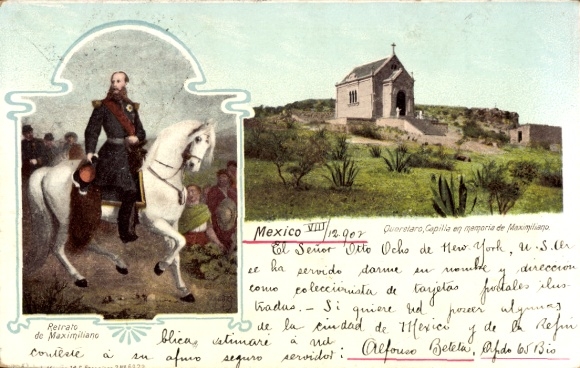 Mexico VIII/12.902
Queretaro, Capilla en memoria de Maximiliano.
El Señor Otto Ochs de New-York, U-S. ller
se ha servido darme su nombre y direccion
como coleccionista de tarjetas postales ilus-
tradas.- Si quiere ud poseer algunas
de la ciudad de Mexico y de la Repú
blica, estimaré á ud
conteste á su afmo seguro servidor:
Alfonso Beteta, Apdo 65 Bis
Retrato
de Maximiliano